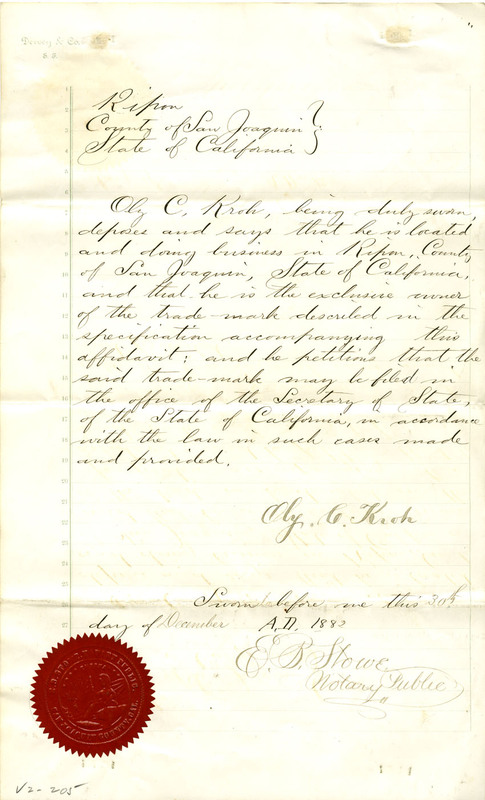 Dewey & Co.
S. F.
Ripon
County of San Joaquin
State of California
Oly C. Kroh, being duly sworn,
deposes and says that he is located
and doing business in Ripon, County
of San Joaquin, State of California,
and that he is the exclusive owner
of the trade-mark described in the
specification accompanying this
affidavit; and he petitions that the
said trade-mark may be filed in
the office of the Secretary of State,
of the State of California, in accordance
with the law in such cases made
and provided.
Oly. C. Kroh
Sworn before me this 30th
day of December A.D. 1882
E. B. Stowe
Notary Public
V2-205